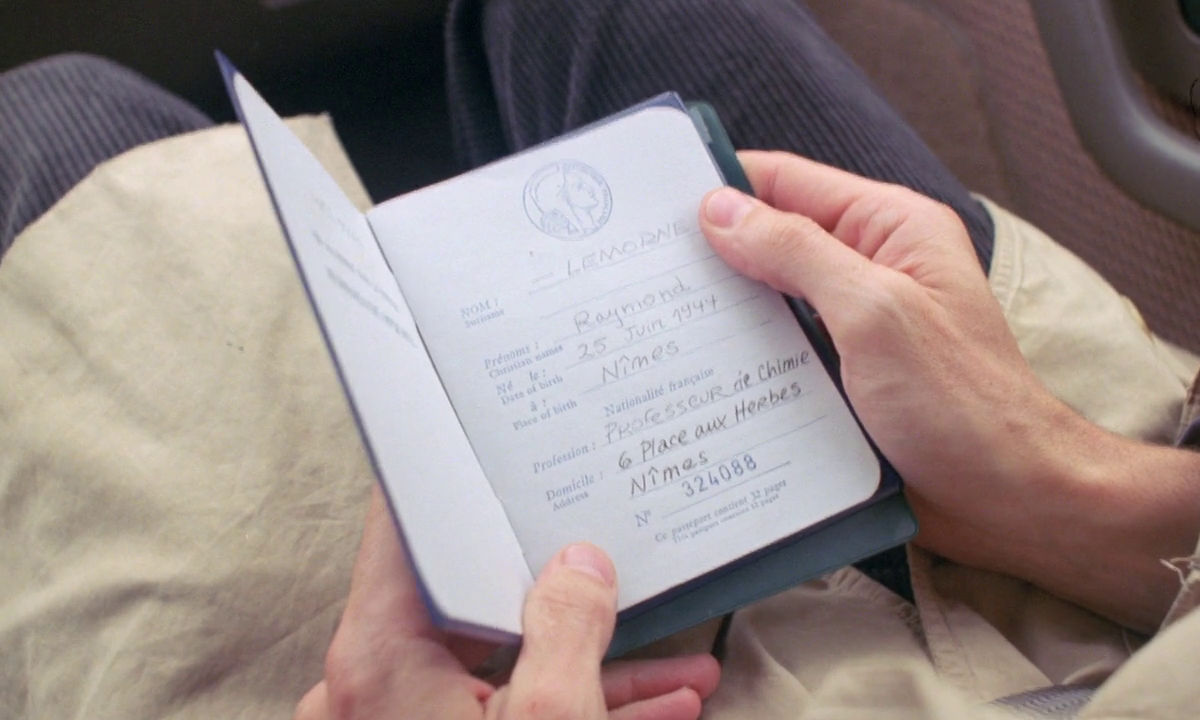 LEMORNE
NOM :
Surname
Raymond
Prénoms :
Christian names
25 Juin 1944
Né le :
Date of birth
Nîmes
à :
Place of birth
Nationalité française
Profession : Professeur de Chimie
Domicile : 6 Place aux Herbes
Address
Nîmes
N° 324088
Ce passeport contient 32 pages
This passport contains 32 pages